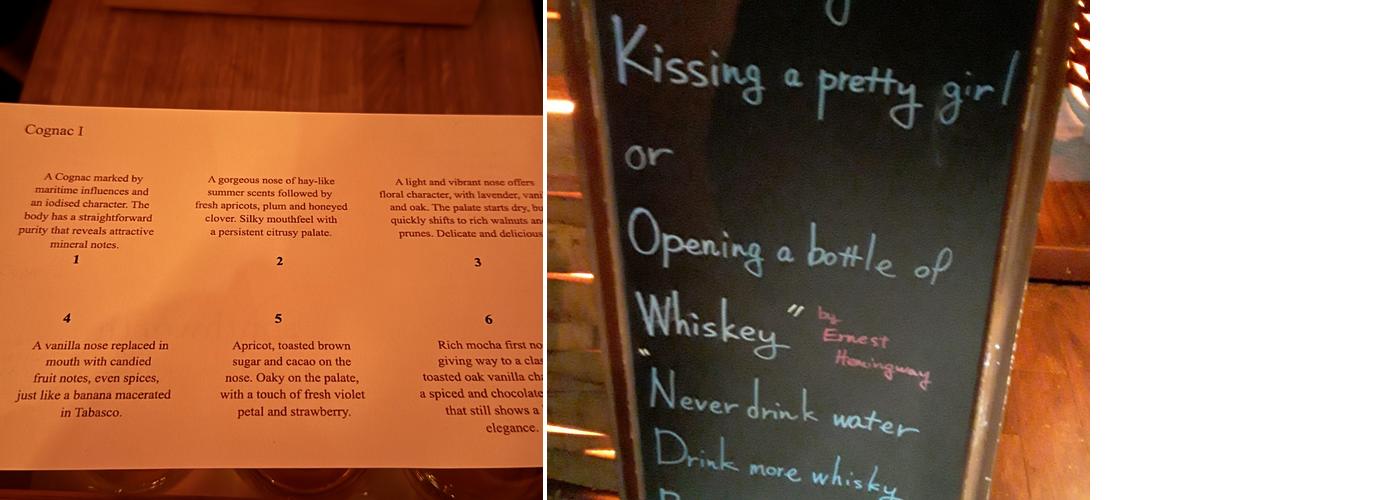 Cognac I
A Cognac marked by
maritime influences and
an iodised character. The
body has a straightforward
purity that reveals attractive
mineral notes.
1
A gorgeous nose of hay-like
summer scents followed by
fresh apricots, plum and honeyed
clover. Silky mouthfeel with
a persistent citrusy palate.
2
A light and vibrant nose offers
floral character, with lavender,
and oak. The palate starts dry,
quickly shifts to rich walnuts
prunes. Delicate and delicious
3
4
A vanilla nose replaced in
mouth with candied
fruit notes, even spices,
just like a banana macerated
in Tabasco.
5
Apricot, toasted brown
sugar and cacao on the
nose. Oaky on the palate,
with a touch of fresh violet
petal and strawberry.
6
Rich mocha first
giving way to a
toasted oak vanilla
a spiced and chocolate
that still shows a
elegance.
Kissing a pretty girl
or
Opening a bottle of
Whiskey" by
Ernest
Hemingway
"Never drink water
Drink more whisky